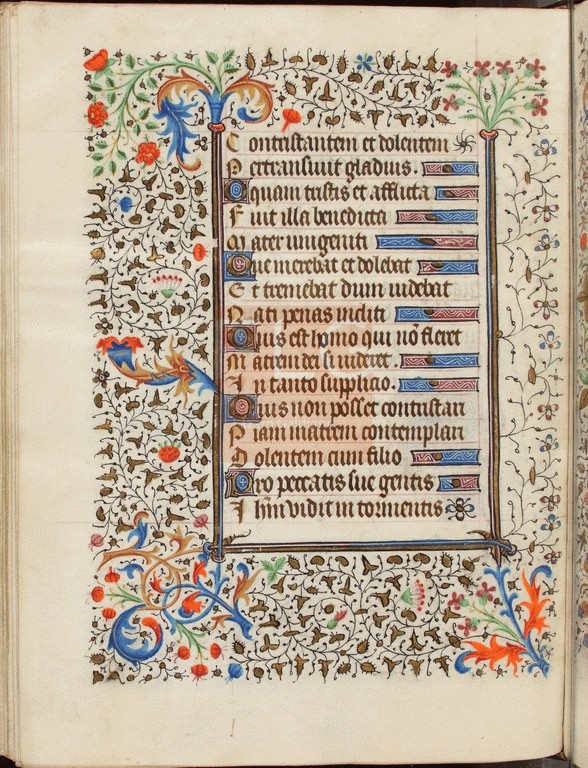 Contristantem et dolentem
Pertransiuit gladius.
O quam tristis et afflicta
Fuit illa benedicta
Mater unigeniti
Que merebat et dolebat
Et tremebat dum uidebat
Nati penas incliti
Quis est homo qui nō fleret
Matrem dei si uideret.
In tanto supplicio.
Quis non posset contristari
Piam matrem contemplari
Dolentem cum filio
Pro peccatis sue gentis
Ihm̄ vidit in tormentis